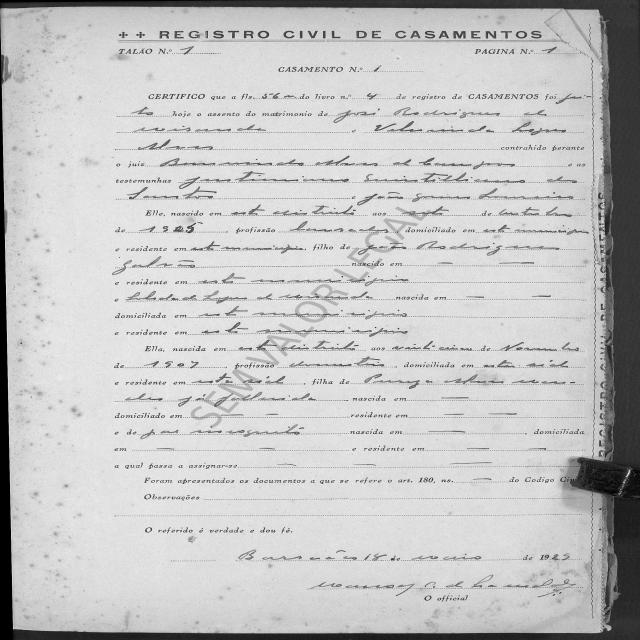 ++ REGISTRO CIVIL DE CASAMENTOS
TALÃO N.º 1 PAGINA N.º 1
CASAMENTO N.º 1
CERTIFICO que a fls. 56 do livro n.º 4 de registro de CASAMENTOS foi fei-
to hoje o assento do matrimonio de José Rodrigues de
Miranda e Lopes
Alves contrahido perante
o juiz Alves de Campos e as
testemunhas Justiniano Quintilliano dos
Santos e João
Elle, nascido em este districto aos sete de Outubro
de 1905, profissão lavrador domiciliado em este municipio
e residente em este municipio, filho de João Rodrigues
Galvão nascido em — —
e residente em este municipio
e Lopes de Miranda nascida em — —
domiciliada em este municipio
e residente em este municipio
Ella, nascida em este districto aos de Novembro
de 1907, profissão domestica, domiciliada em
e residente em, filha de Alves
já fallecida, nascida em —
domiciliado em — residente em — —
e de pae incognito nascida em —, domiciliada
em — — e residente em — —
a qual passa a assignar-se — — —
Foram apresentados os documentos a que se refere o art. 180, ns. — do Codigo Civ
Observações
O referido é verdade e dou fé.
18 de Maio de 1929
O official
SEM VALOR LEGAL
REGISTRO CIVIL DE CASAMENTOS